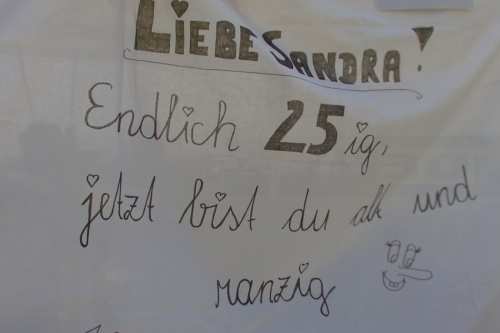 LIEBE SANDRA!
Endlich 25ig,
jetzt bist du alt und
ranzig